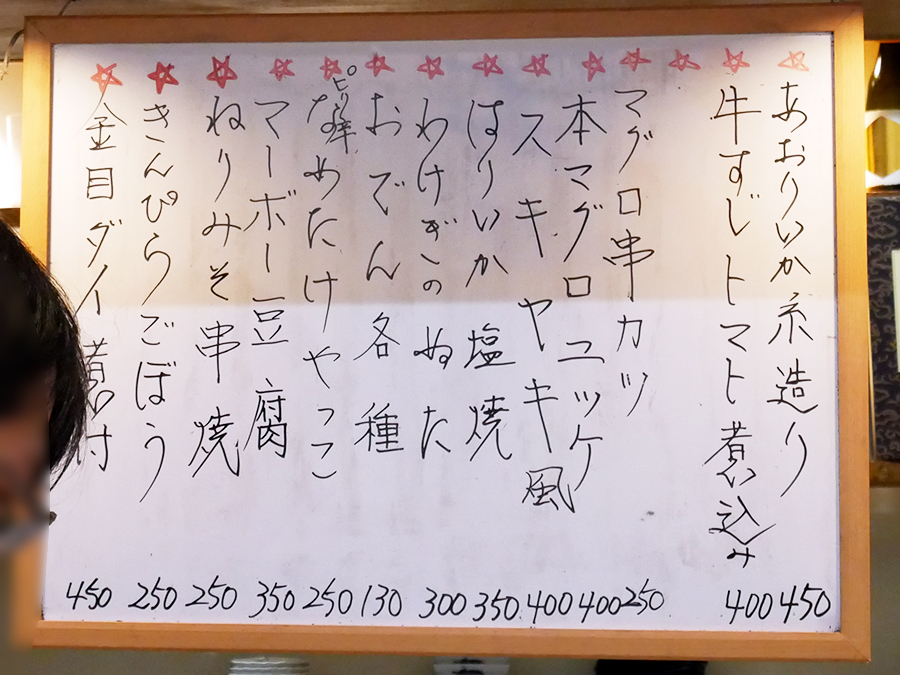 あおりいか糸造り 450
牛すじトマト煮込み 400
マグロ串カツ 250
本マグロユッケ 400
スキヤキ風 400
はりいか塩焼 350
わけぎのぬた 300
おでん各種 130
ピリ辛なめたけやっこ 250
マーボー豆腐 350
ねりみそ串焼 250
きんぴらごぼう 250
金目ダイ煮付 450